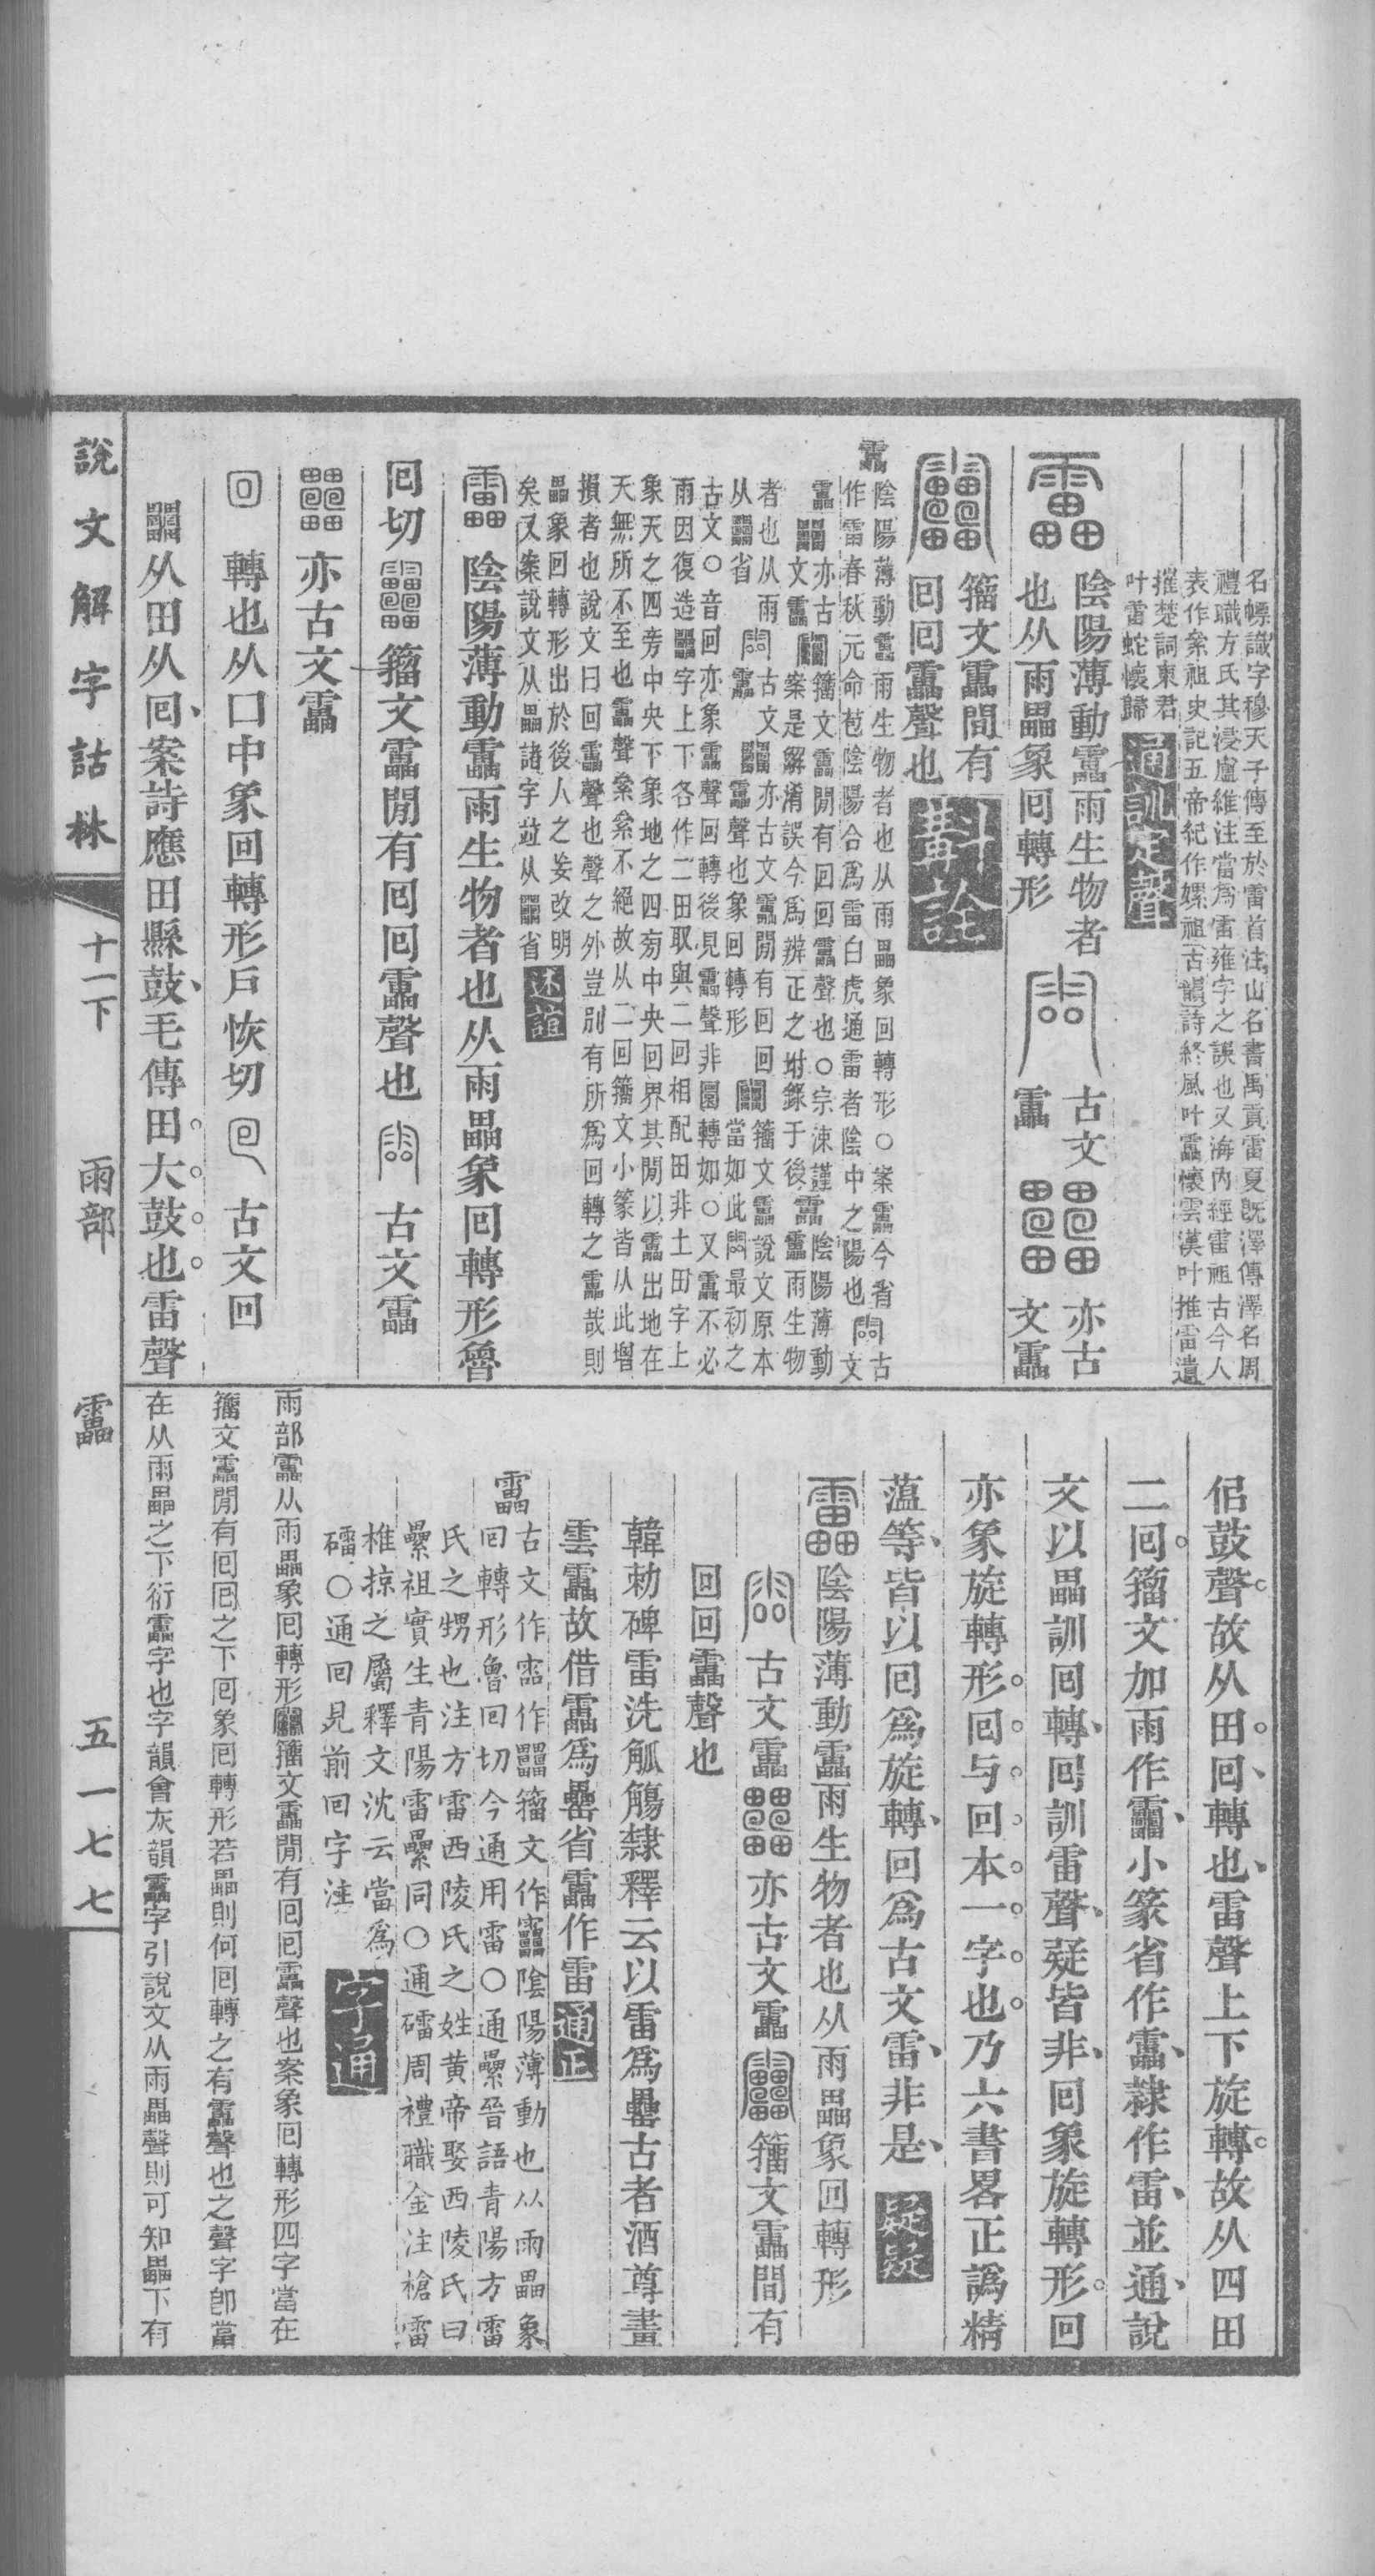 名幖識字穆天子傳至於雷首注山名書禹貢雷夏既澤傳澤名周
禮職方氏其浸盧維注當爲雷雍字之誤也又海內經雷祖古今人
表作絫祖史記五帝紀作嫘祖古韻詩終風叶靁懷雲漢叶推雷遺
摧楚詞東君
叶雷蛇懷歸
通訓定聲
陰陽薄動靁雨生物者
也从雨畾象回轉形
古文
靁
亦古
文靁
籀文靁間有
回回靁聲也
靁
陰陽薄動靁雨生物者也从雨畾象回轉形○案靁今省古
作雷春秋元命苞陰陽合爲雷白虎通雷者陰中之陽也文
靁亦古籀文靁閒有回回靁聲也○宗涑謹靁陰陽薄動
文靁案是解淆誤今爲辨正之坿錄于後靁雨生物
者也从雨古文亦古文靁閒有回回籀文靁說文原本
从省靁靁聲也象回轉形當如此最初之
古文○音回亦象靁聲回轉後見靁聲非圜轉如○又靁不必
雨因復造字上下各作二田取與二回相配田非土田字上
象天之四旁中央下象地之四旁中央回界其閒以靁出地在
天無所不至也靁聲絫絫不絕故从二回籀文小篆皆从此增
損者也說文曰回靁聲也聲之外豈別有所爲回轉之靁哉則
畾象回轉形出於後人之妄改明
矣又案說文从畾諸字竝从省
述誼
陰陽薄動靁雨生物者也从雨畾象回轉形魯
回切籀文靁閒有回回靁聲也古文靁
亦古文靁
回轉也从口中象回轉形戶恢切古文回
从田从回案詩應田縣鼓毛傳田大鼓也雷聲
佀鼓聲故从田回轉也雷聲上下旋轉故从四田
二回籀文加雨作小篆省作靁隸作雷並通說
文以畾訓回轉回訓雷聲疑皆非回象旋轉形回
亦象旋轉形回与回本一字也乃六書畧正譌精
薀等皆以回爲旋轉回爲古文雷非是
疑疑
陰陽薄動靁雨生物者也从雨畾象回轉形
古文靁亦古文靁籀文靁間有
回回靁聲也
韓勑碑雷洗觚觴隸釋云以雷爲罍古者酒尊畫
雲靁故借靁爲罍省靁作雷
通正
靁
古文作作籀文作陰陽薄動也从雨畾象
回轉形魯回切今通用雷○通纍晉語青陽方雷
氏之甥也注方雷西陵氏之姓黃帝娶西陵氏曰
纍祖實生青陽雷纍同○通礌周禮職金注槍雷
椎掠之屬釋文沈云當爲
礌○通回見前回字注
字通
雨部靁从雨畾象回轉形籀文靁閒有回回靁聲也案象回轉形四字當在
籀文靁閒有回回之下回象回轉形若畾則何回轉之有靁聲也之聲字卽當
在从雨畾之下衍靁字也字韻會灰韻靁字引說文从雨畾聲則可知畾下有
說文解字詁林
十一下
雨部
靁
五一七七